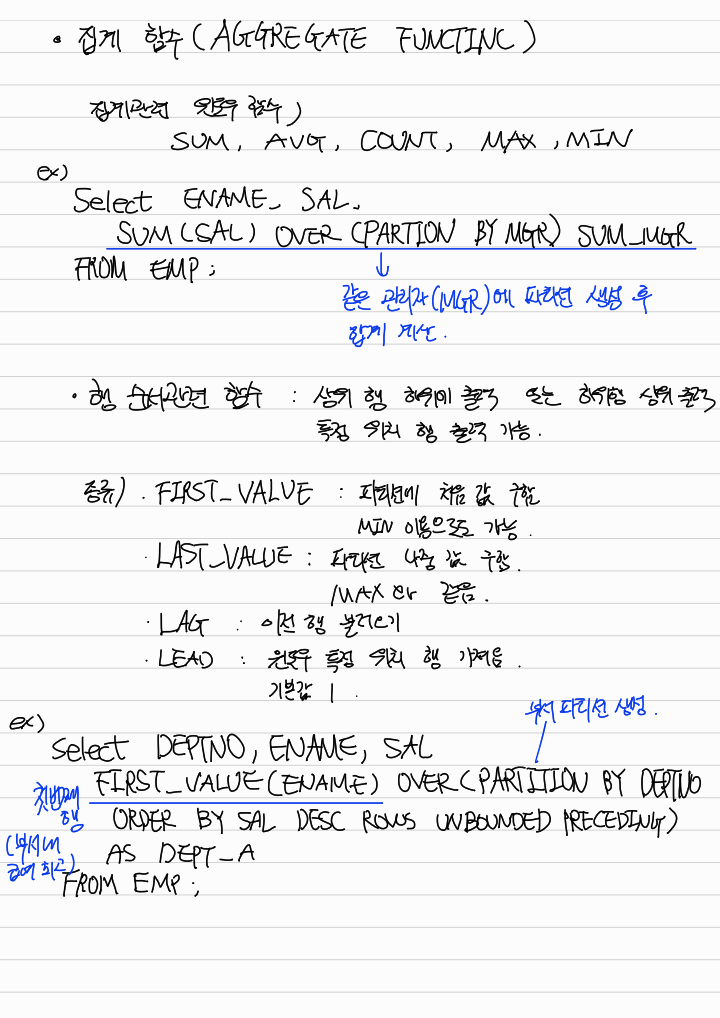 • 집계 함수 (AGGREGATE FUNCTINC)
집계관련 윈도우 함수)
SUM, AVG, COUNT, MAX, MIN
ex)
Select ENAME, SAL,
SUM(SAL) OVER (PARTION BY MGR) SUM_MGR
FROM EMP;
↓
같은 관리자(MGR)에 파라면 생성 후
합계 계산.
• 행 순서관련 함수 : 상위 행 하위에 출력 또는 하위행 상위 출력
특정 위치 행 출력 가능.
종류) · FIRST_VALUE : 파티션에 처음 값 구함
MIN 이용으로도 가능.
· LAST_VALUE : 파티션 나중 값 구함.
MAX 와 같음.
· LAG : 이전 행 불러오기
· LEAD : 윈도우 특정 위치 행 가져옴.
기본값 1.
부서 파티션 생성.
ex)
Select DEPTNO, ENAME, SAL
FIRST_VALUE(ENAME) OVER (PARTITION BY DEPTNO
첫번째
행
ORDER BY SAL DESC ROWS UNBOUNDED PRECEDING)
(부서내
급여 최고)
AS DEPT_A
FROM EMP;